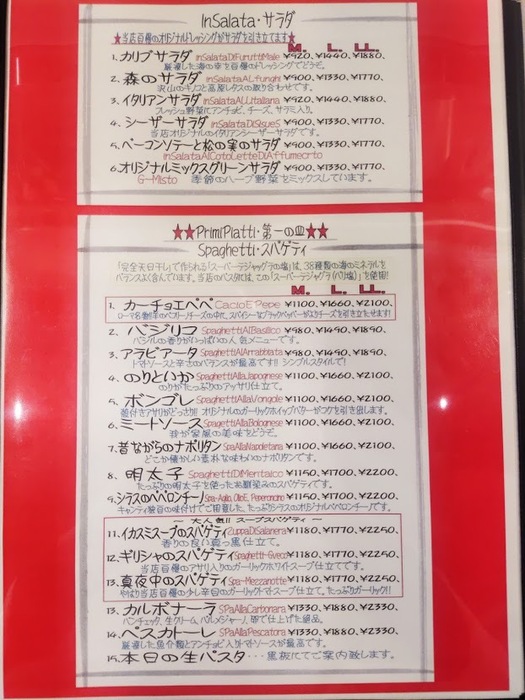 InSalata・サラダ
★当店自慢のオリジナルドレッシングがサラダを引き立てます★
M. L. LL.
1. カリブサラダ InSalataDiFuruttiMale ¥920、¥1440、¥1880、
厳選した海の幸を自慢のドレッシングでどうぞ。
2. 森のサラダ inSalataALfunghi ¥900、¥1330、¥1770、
沢山のキノコと高原レタスの取り合わせです。
3. イタリアンサラダ inSalataALLitaliana ¥920、¥1440、¥1880、
フレッシュ野菜にアンチョビ、チーズ、サラミ入り。
4. シーザーサラダ inSalataDiSisueS ¥900、¥1330、¥1770、
当店オリジナルのイタリアンシーザーサラダです。
5. ベーコンソテーと松の実のサラダ ¥900、¥1330、¥1770、
inSalataAlCotoLetteDiAffumecrto
6. オリジナルミックスグリーンサラダ ¥900、¥1330、¥1770、
G-Misto 季節のハーブ野菜をミックスしています。
★★PrimiPiatti・第一の皿★★
Spaghetti・スパゲティ
「完全天日干し」で作られる「スーパーデラジャグラの塩」は、38種類の海のミネラルを
バランスよく含んでいます。当店のパスタには、この「スーパーデラジャグラ(バリ塩)」を使用!!
M. L. LL.
1. カーチョエペペ CacioE Pepe ¥1100、¥1660、¥2100、
ローマ名物!羊のペコリーノチーズの中に、スパイシーなブラックペッパーがよりチーズを引き立たせます!
2. バジリコ SpaghettiAlBasilico ¥980、¥1490、¥1890、
バジルの香りがいっぱいの人気メニューです。
3. アラビアータ SpaghettiAlArrabbiata ¥980、¥1490、¥1890、
トマトソースと辛さのバランスが最高です!! シンプルスタイルで!
4. のりといか SpaghettiAllaJapognese ¥1100、¥1660、¥2100、
のりがたっぷりのアッサリ仕立て。
5. ボンゴレ SpaghettiAllaVongole ¥1100、¥1660、¥2100、
殻付きアサリがどっさり!! オリジナルのガーリックホイップバターがコクを引き出します。
6. ミートソース SpagettiAllaBolognese ¥1100、¥1660、¥2100、
我が家風の美味をどうぞ。
7. 昔ながらのナポリタン SpaAllaNapoletana ¥1100、¥1660、¥2100、
どこか懐かしい素朴な味わいのナポリタンです。
8. 明太子 SpaghettiDiMentaico ¥1150、¥1700、¥2200、
たっぷりの明太子を使ったお馴染みのスパゲティです。
9. シラスのペペロンチーノ Spa-Aglio, OlioE, Peperoncino ¥1150、¥1700、¥2200、
キャンティ独自の味付けでご用意した、たっぷりシラスのオリジナルペペロンチーノです。
～ 大人気!! スープスパゲティ ～
11. イカスミスープのスパゲティ ZuppaDiSalanera ¥1180、¥1770、¥2250、
香りの良い真っ黒仕立て。
12. ギリシャのスパゲティ Spaghetti-Greco ¥1180、¥1770、¥2250、
当店自慢のアサリ入りのガーリックホワイトスープ仕立てです。
13. 真夜中のスパゲティ Spa-Mezzanotte ¥1180、¥1770、¥2250、
やはり当店自慢の少し辛目のガーリックトマトスープ仕立。たっぷりガーリック!!
13. カルボナーラ SPaAllaCarbonara ¥1330、¥1880、¥2330、
パンチェッタ、生クリーム、パルメジャーノ、卵で仕上げた絶品。
14. ペスカトーレ SPaAllaPescatora ¥1330、¥1880、¥2330、
厳選した魚介類とアンチョビ入りトマトソースが最高です。
15. 本日の生パスタ・・・黒板にてご案内致します。